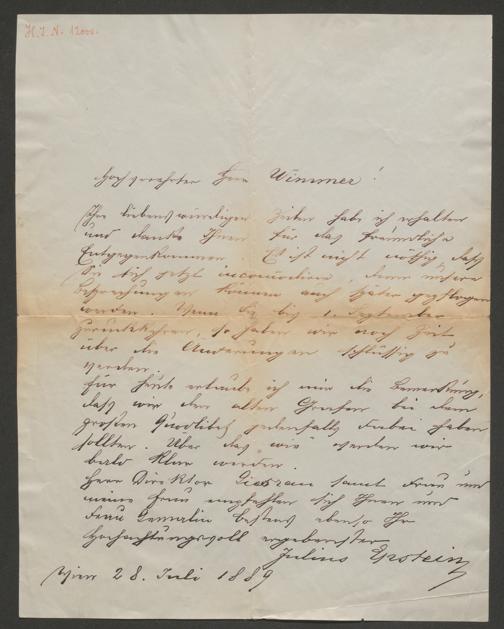 H. I. N. 12000.
Hochverehrter Herr Wimmer!
Ihre liebenswürdigen Zeilen habe ich erhalten
und danke Ihnen für das freundliche
Entgegenkommen. Es ist nicht nöthig, daß
Sie sich jetzt incomodiren, denn unsere
Besprechungen können auch später gepflogen
werden. Wenn Sie bis 1. September
zurückkehren, so haben wir noch Zeit
über die Änderungen schlüssig zu
werden.
Für heute erlaube ich mir die Bemerkung,
daß wir den alten Grafen bei dem
großen Quodlibet jedenfalls dabei haben
sollten. Über das „wie" werden wir
bald klar werden.
Herr Direktor samt Frau und
meine Frau empfehlen sich Ihnen und
Frau Gemalin bestens ebenso Ihr
Hochachtungsvoll ergebenster
Julius Epstein
Wien 28. Juli 1889